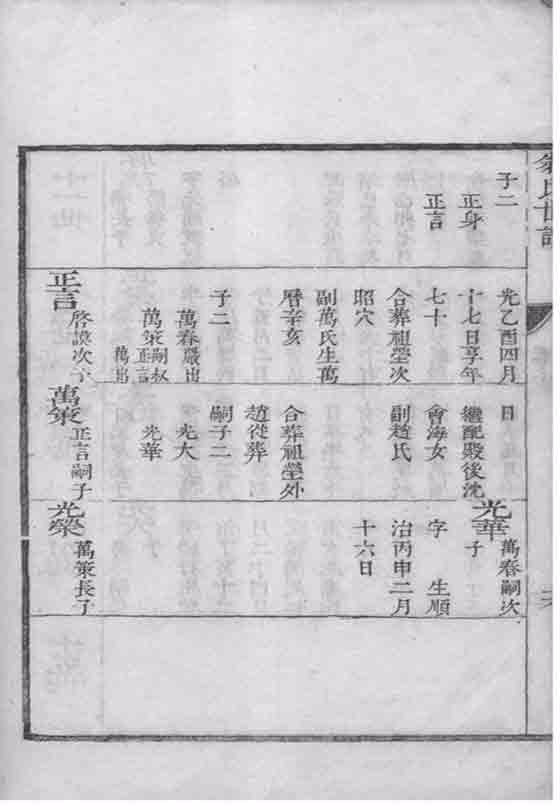 子二
正身
正言
光乙酉四月
十七日享年
七十
合葬祖塋次
昭穴
副萬氏生萬
曆辛亥
子二
萬春嚴出
萬策嗣叔正言萬出
正言啓謨次子
日
繼配殷後沈
會海女
副趙氏
合葬祖塋外
趙從葬
嗣子二
光大
光華
萬策正言嗣子
光華萬春嗣次
子
字 生順
治丙申二月
十六日
光榮萬策長子